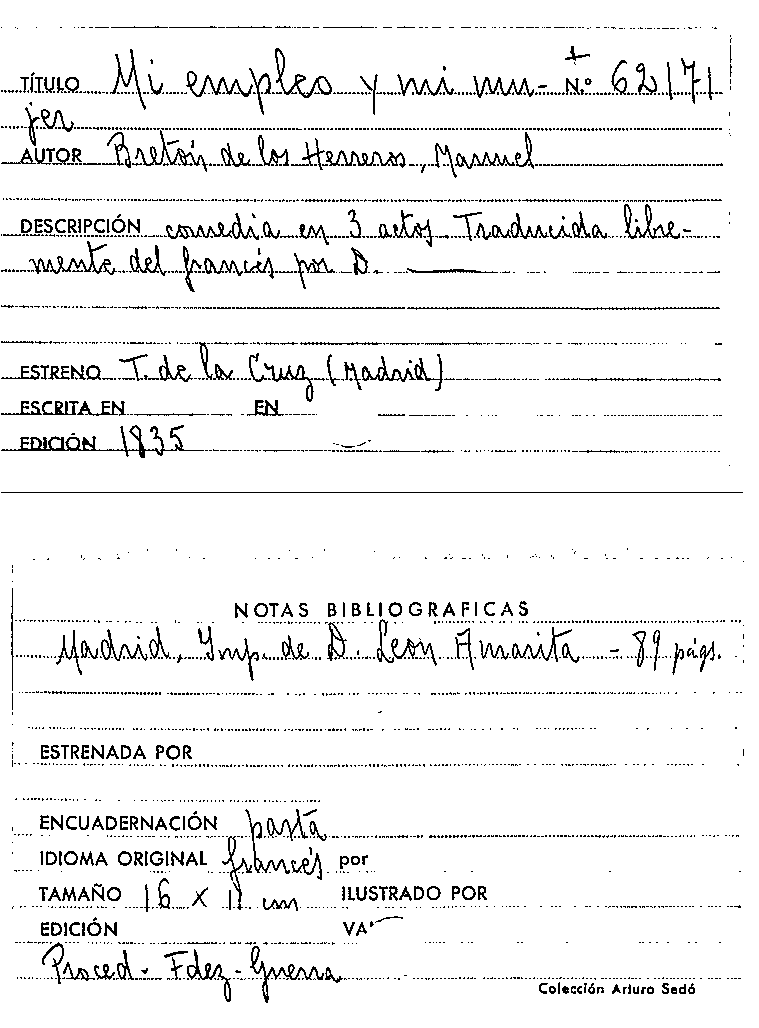 TÍTULO Mi empleo y mi mu- N.º 62171
jer
AUTOR Bretón de los Herreros, Manuel
DESCRIPCIÓN comedia en 3 actos. Traducida libre-
mente del francés por D. ———
ESTRENO T. de la Cruz (Madrid)
ESCRITA EN EN
EDICIÓN 1835
NOTAS BIBLIOGRAFICAS
Madrid, Imp. de D. León Amarita - 89 págs.
ESTRENADA POR
ENCUADERNACIÓN pasta
IDIOMA ORIGINAL francés por
TAMAÑO 16 x 11 cm ILUSTRADO POR
EDICIÓN VA
Proced. Fdez-Guerra
Colección Arturo Sedó